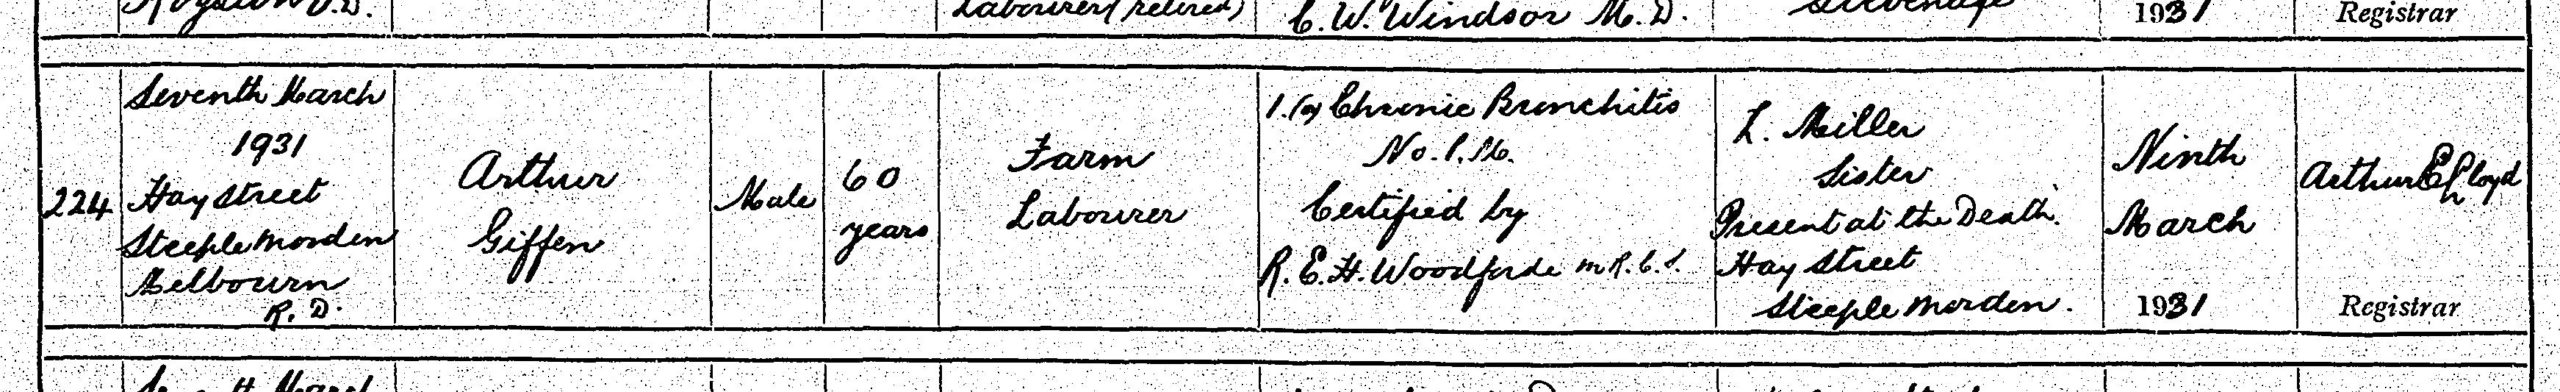 Labourer (retired)
C. W. Windsor M.D.
1931
Registrar
224
Seventh March
1931
Hay Street
Steeple Morden
Melbourn
R. D.
Arthur
Giffen
Male
60
years
Farm
Labourer
1. (a) Chronic Bronchitis
No. P.M.
Certified by
R. E. H. Woodforde M.R.C.S.
L. Miller
Sister
Present at the Death.
Hay Street
Steeple Morden.
Ninth
March
1931
Arthur E Lloyd
Registrar